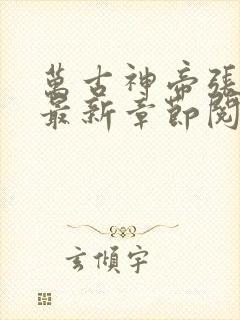 萬古神帝張
最新章節閱
玄傾宇